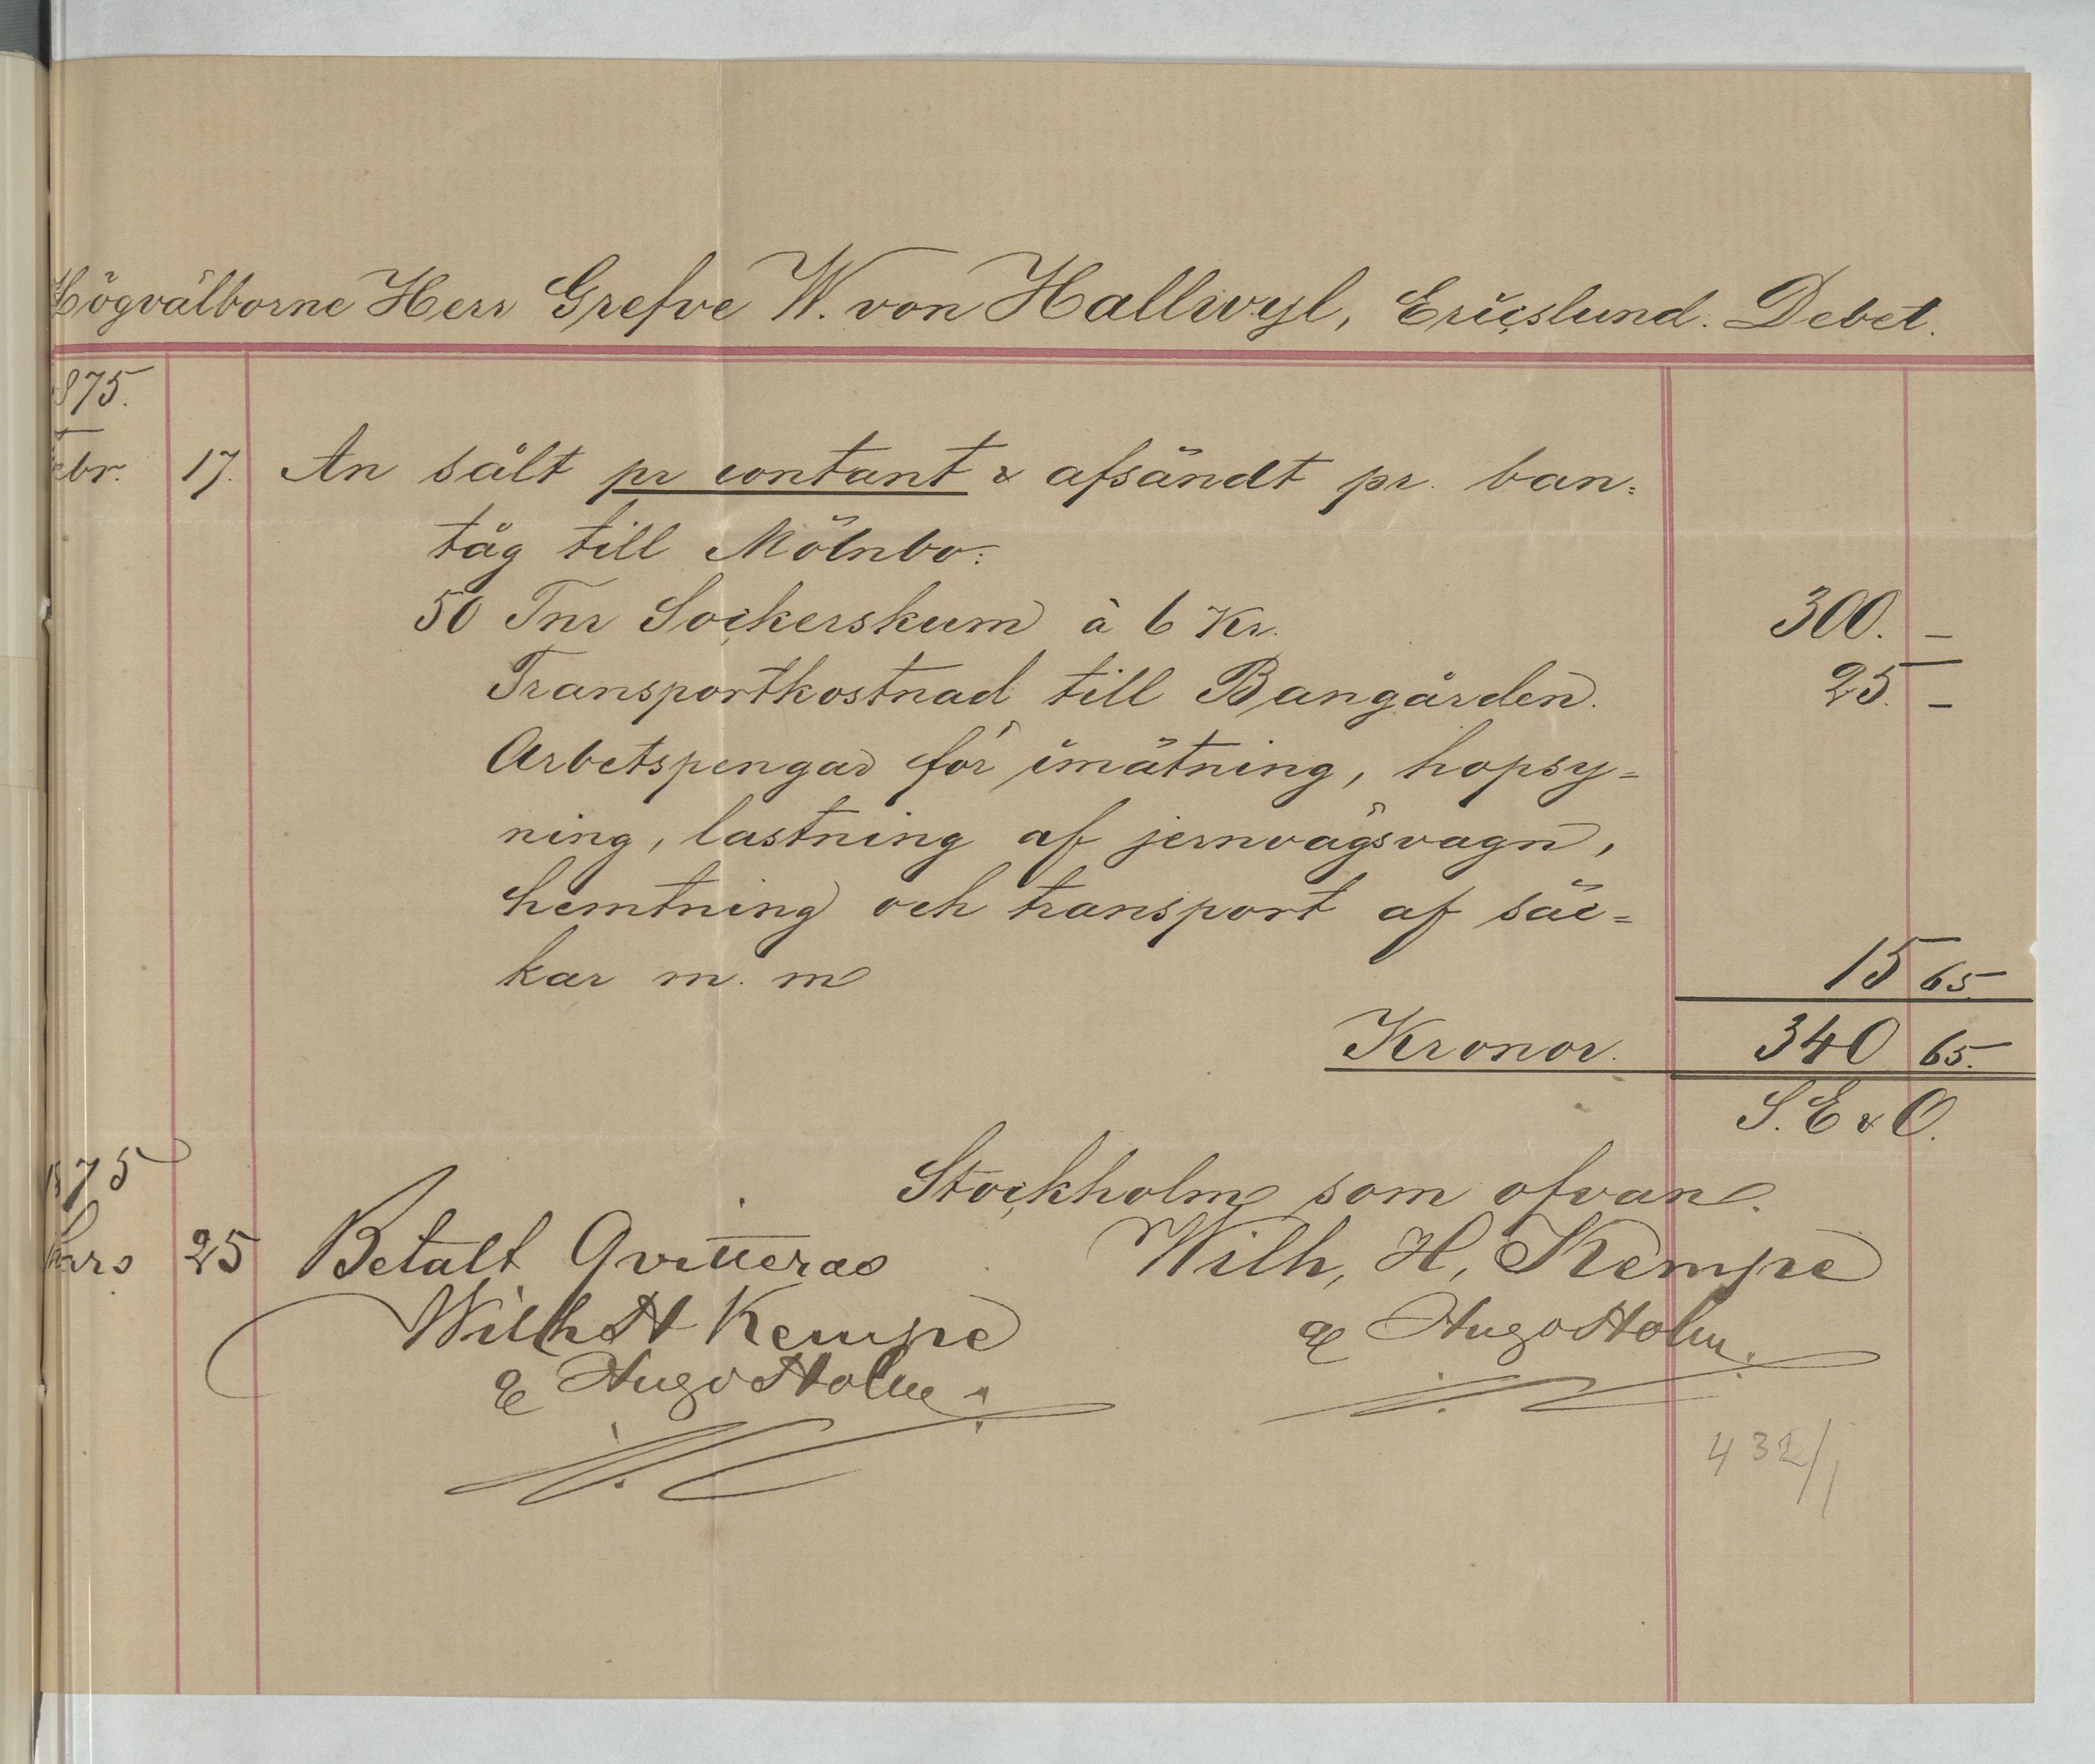 Högvälborne Herr Grefve W. von Hallwyl, Ericslund. Debet.
875.
ebr. 17. An sålt pr contant & afsändt pr. ban=
tåg till Mölnbo:
50 Tnr Sockerskum à 6 Kr. 300. –
Transportkostnad till Bangården. 25. –
Arbetspengar för imätning, hopsy=
ning, lastning af jernvägsvagn,
hemtning och transport af säc=
kar m. m 15 65.
Kronor. 340 65.
S. E & O.
Stockholm som ofvan.
75
ars 25 Betalt Qvitteras
Wilh, H, Kempe
Wilh H Kempe
Hugo Holm.
Hugo Holm.
432/1